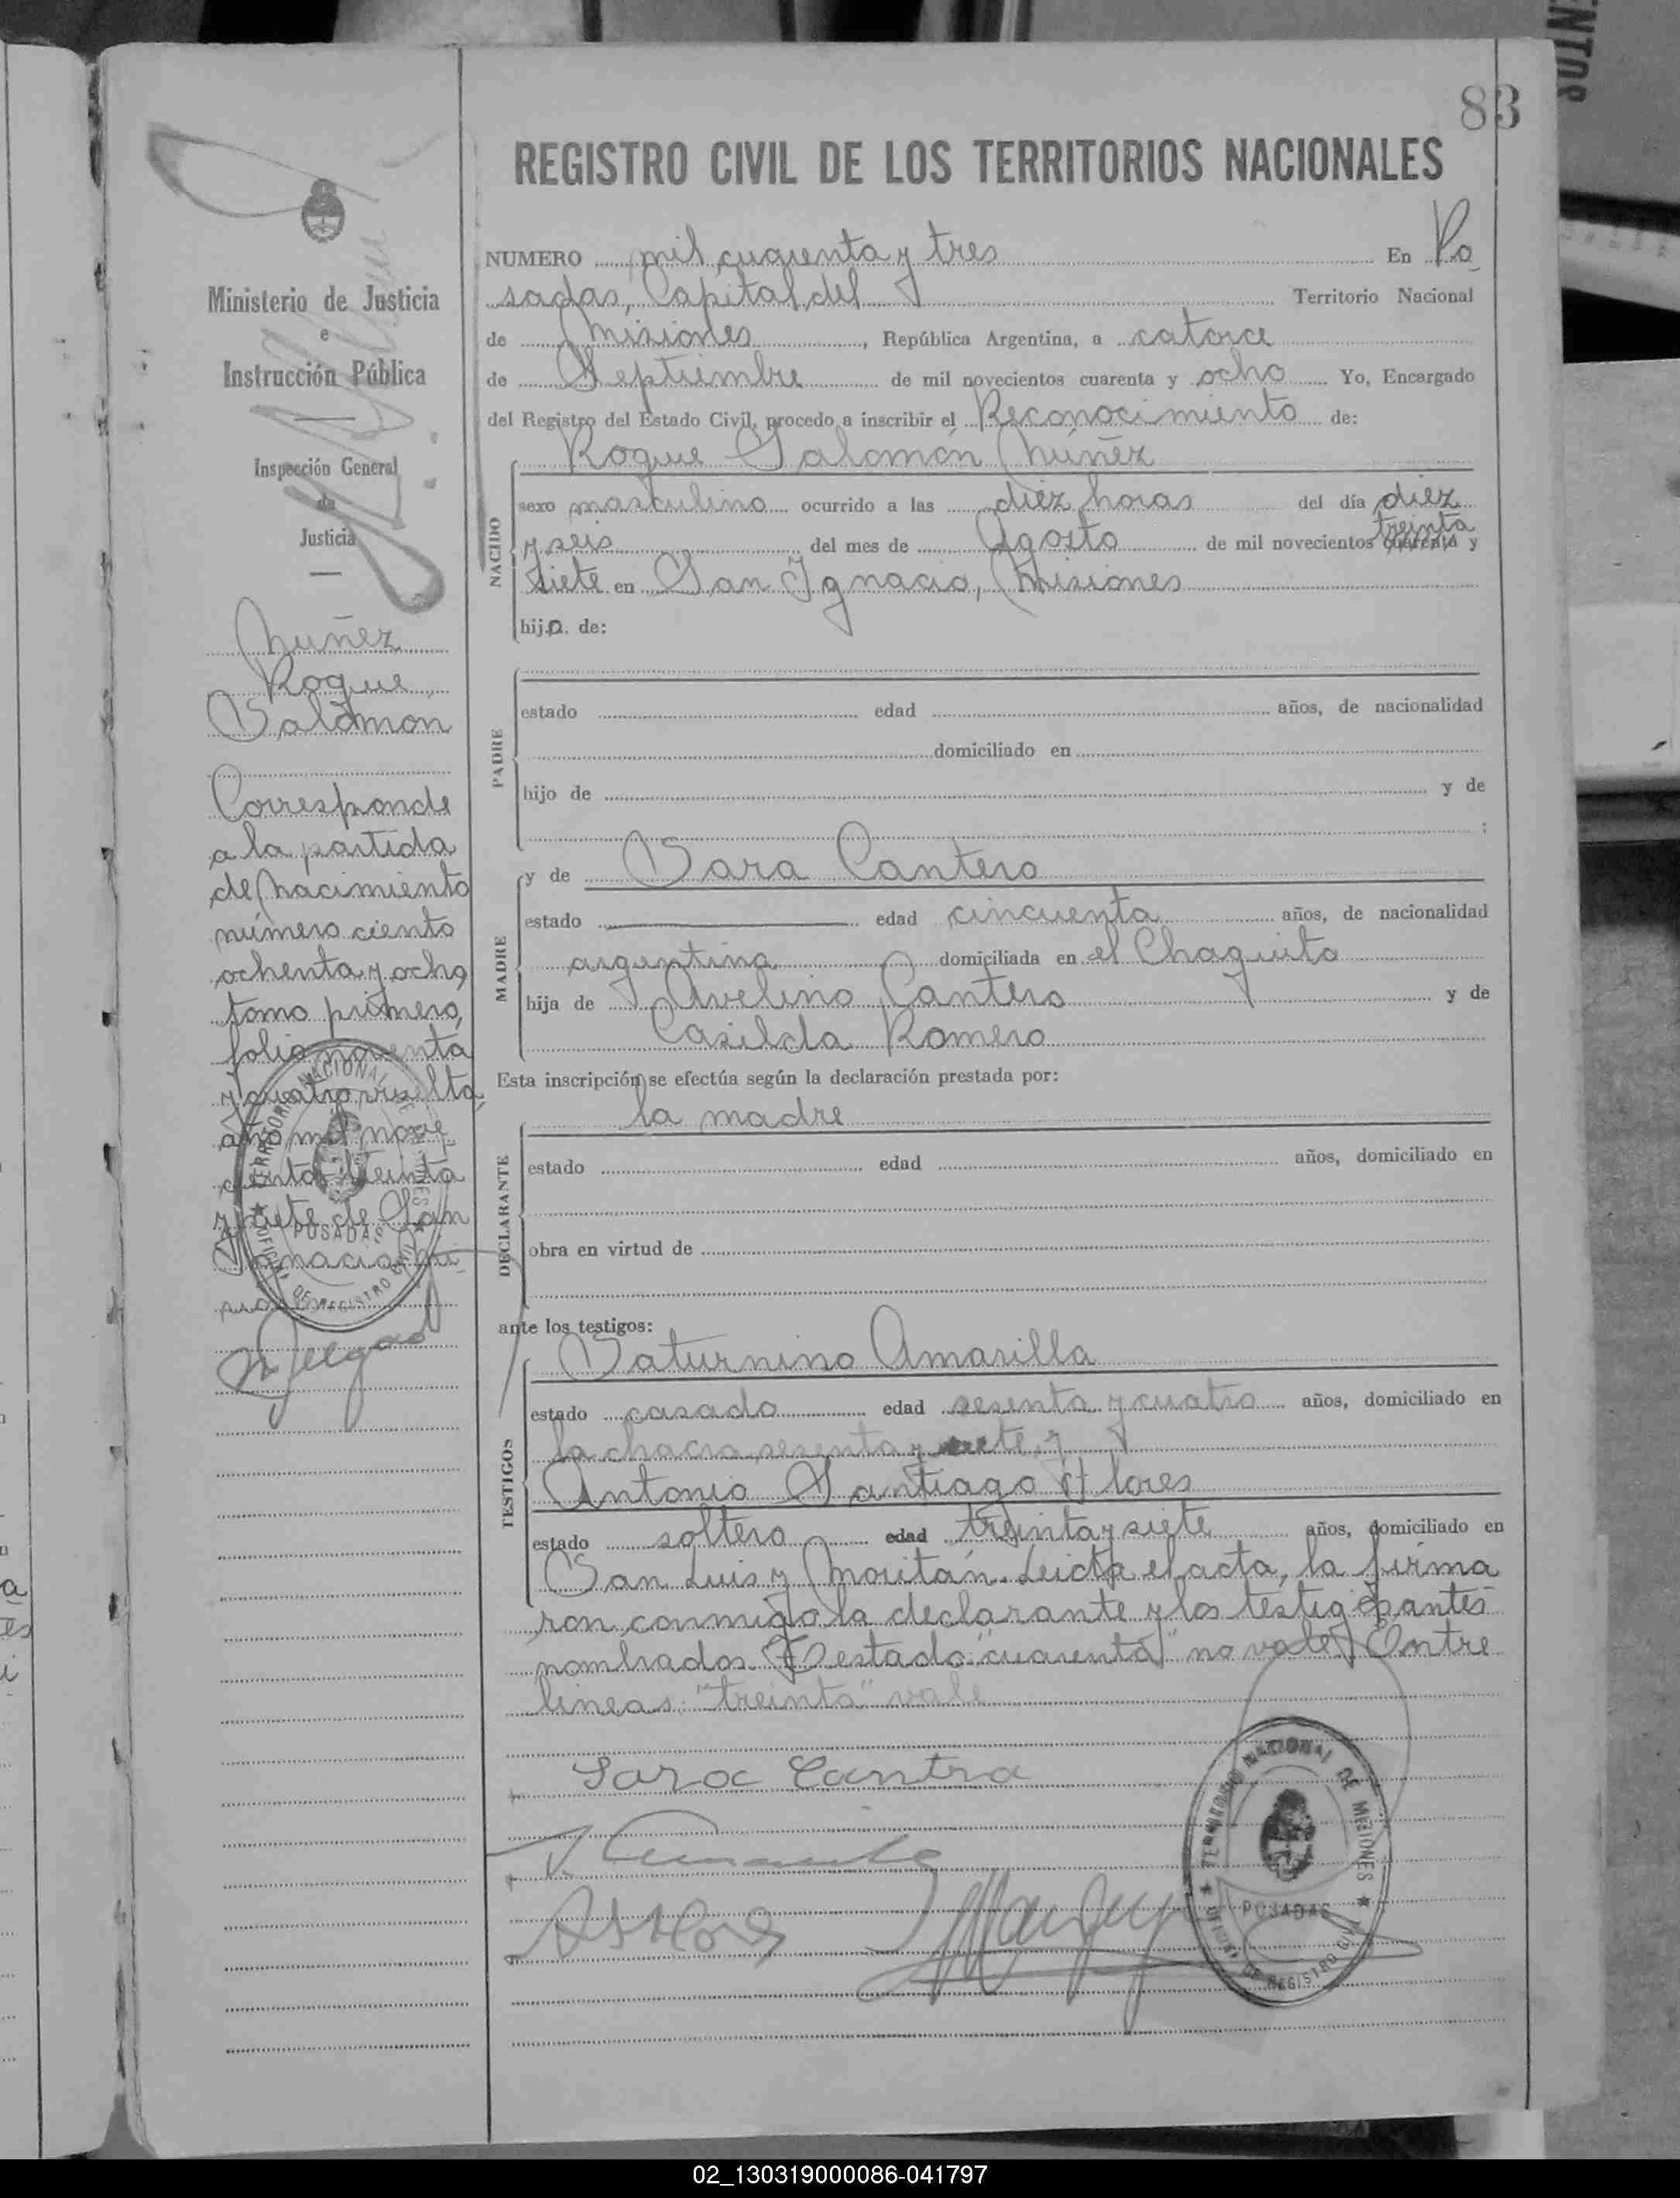 83
REGISTRO CIVIL DE LOS TERRITORIOS NACIONALES
Ministerio de Justicia
e
Instrucción Pública
Inspección General
de
Justicia
Nuñez
Roque
Salomón
Corresponde
a la partida
de nacimiento
número ciento
ochenta y ocho,
tomo primero,
folio noventa
y cuatro vuelta
año mil nove
cientos treinta
y siete de San
Ignacio Mi
siones
NUMERO mil cuarenta y tres En Po
sadas, Capital del Territorio Nacional
de Misiones, República Argentina, a catorce
de Septiembre de mil novecientos cuarenta y ocho Yo, Encargado
del Registro del Estado Civil, procedo a inscribir el Reconocimiento de:
Roque Salomón Núñez
NACIDO
sexo masculino ocurrido a las diez horas del día diez
treinta
y seis del mes de Agosto de mil novecientos cuarenta y
siete en San Ignacio, Misiones
hijo. de:
PADRE
estado edad años, de nacionalidad
domiciliado en
hijo de y de
;
MADRE
y de Sara Cantero
estado edad cincuenta años, de nacionalidad
argentina domiciliada en el Chaquito
hija de Avelino Cantero y de
Casilda Romero
Esta inscripción se efectúa según la declaración prestada por:
la madre
DECLARANTE
estado edad años, domiciliado en
obra en virtud de
ante los testigos:
TESTIGOS
Saturnino Amarilla
estado casado edad sesenta y cuatro años, domiciliado en
la chacra sesenta y siete, y
Antonio Santiago Flores
estado soltero edad treinta y siete años, domiciliado en
San Luis y Moritán. Leida el acta, la firma
ron conmigo la declarante y los testigos antes
nombrados. Testado: "cuarenta" no vale. Entre
lineas: "treinta" vale
Sara Cantra
TERRITORIO NACIONAL DE MISIONES
POSADAS
OFICINA DE REGISTRO CIVIL
TERRITORIO NACIONAL DE MISIONES
POSADAS
OFICINA DE REGISTRO CIVIL
02_130319000086-041797